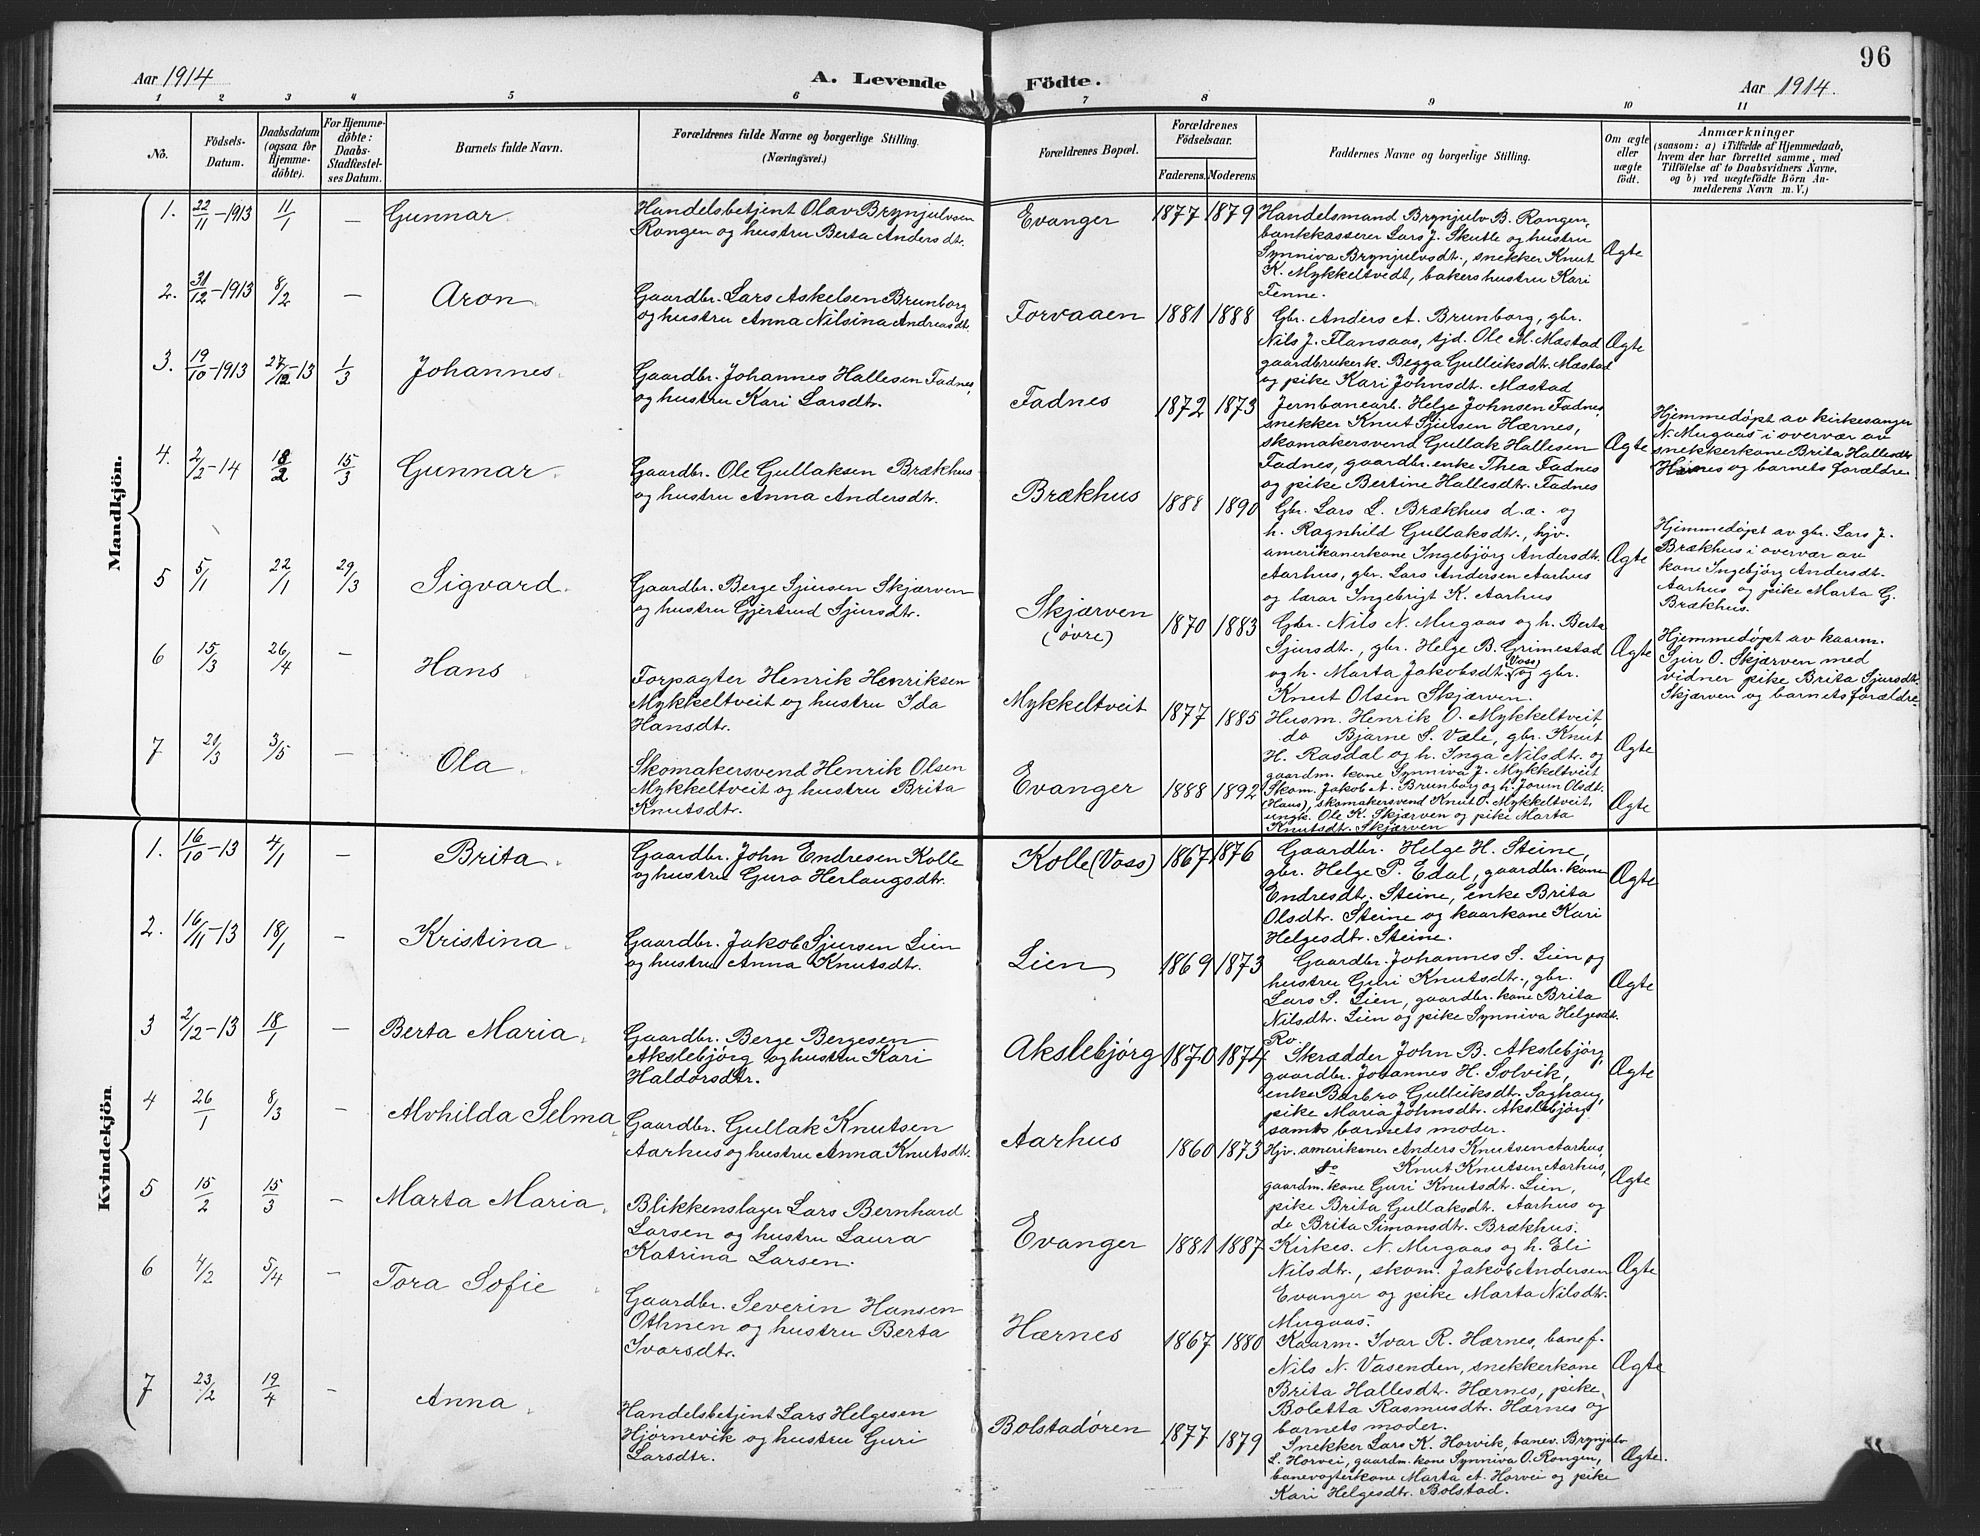 96
Aar 1914
A. Levende Födte.
Aar 1914.
1 2 3 4 5 6 7 8 9 10 11
No.
Födsels-
Datum.
Daabsdatum
(ogsaa for
Hjemme-
döbte).
For Hjemme-
döbte:
Daabs-
Stadfæstel-
ses Datum.
Barnets fulde Navn.
Forældrenes fulde Navne og borgerlige Stilling.
(Næringsvei.)
Forældrenes Bopæl.
Forældrenes
Födselsaar.
Faderens. Moderens
Faddernes Navne og borgerlige Stilling.
Om ægte
eller
uægte
födt.
Anmærkninger
(saasom: a) i Tilfælde af Hjemmedaab,
hvem der har forrettet samme, med
Tilföielse af to Daabsvidners Navne,
og b) ved uægtefödte Börn An-
melderens Navn m. V.)
Mandkjön.
1. 22/11-1913 11/1 — Gunnar.
Handelsbetjent Olav Brynjulvsen
Rongen og hustru Berta Andersdtr.
Evanger 1877 1879
Handelsmand Brynjulv B. Rongen,
bankkasserer Lars J. Skutle og hustru
Synniva Brynjulvsdt., snekker Knut
K. Mykkeltvedt, bakers hustru Kari
Tenne.
Ægte
2. 31/12-1913 8/2 — Aron.
Gaardbr. Lars Askelsen Brunborg
og hustru Anna Nilsina Andreasdt.
Forvaaen 1881 1888
Gbr. Anders A. Brunborg, gbr.
Nils J. Flansaas, tjd. Ole M. Mæstad
gaardbrukerk. Begga Gulleiksdt. Mæstad
og pike Kari Johnsdt. Mæstad
Ægte
3. 19/10-1913 27/12-13 1/3 Johannes.
Gaardbr. Johannes Hallesen Fadnes,
og hustru Kari Larsdtr.
Fadnes 1872 1873
Jernbanearb. Helge Johnsen Fadnes,
snekker Knut Sjursen Hærnes,
skomakersvend Gullak Hallesen
Fadnes, gaardbr. enke Thea Fadnes
og pike Bertine Hallesdt. Fadnes
Ægte
Hjemmedøpt av kirkesanger
N. Mugaas i overvær av
snekkerkone Brita Hallesdtr.
Hærnes og barnets forældre.
4. 2/2-14 18/2 15/3 Gunnar.
Gaardbr. Ole Gullaksen Brækhus
og hustru Anna Andersdtr.
Brækhus 1888 1890
Gbr. Lars L. Brækhus d.æ. og
h. Ragnhild Gullaksdt., hjv.
amerikanerkone Ingebjørg Andersdt.
Aarhus, gbr. Lars Andersen Aarhus
og lærar Ingebrigt K. Aarhus
Ægte
Hjemmedøpt av gbr. Lars J.
Brækhus i overvær av
kone Ingebjørg Andersdt.
Aarhus og pike Marta G.
Brækhus.
5 5/1 22/1 29/3 Sigvard.
Gaardbr. Berge Sjursen Skjærven
og hustru Gjertrud Sjursdtr.
Skjærven
(øvre) 1870 1883
Gbr. Nils N. Mugaas og h. Berta
Sjursdt., gbr. Helge B. Grimestad
og h. Marta Jakobsdt. (Voss) og gbr.
Knut Olsen Skjærven.
Ægte
Hjemmedøpt av kaarm.
Sjur O. Skjærven med
vidner pike Brita Sjursdt.
Skjærven og barnets forældre.
6 15/3 26/4 — Hans
Forpagter Henrik Henriksen
Mykkeltveit og hustru Ida
Hansdtr.
Mykkeltveit 1877 1885
Husm. Henrik O. Mykkeltveit,
do Bjarne S. Væle, gbr. Knut
H. Rasdal og h. Inga Nilsdtr. og
gaardm. kone Synniva J. Mykkeltveit
Ægte
7 21/3 3/5 — Ola
Skomakersvend Henrik Olsen
Mykkeltveit og hustru Brita
Knutsdtr.
Evanger 1888 1892
Skom. Jakob A. Brunborg og h. Jorun Olsdt.
(Haus), skomakersvend Knut O. Mykkeltveit,
ungk. Ole K. Skjærven og pike Marta
Knutsdtr. Skjærven
Ægte
Kvindekjön.
1. 16/10-13 4/1 — Brita.
Gaardbr. John Endresen Kolle
og hustru Guro Herlaugsdtr.
Kolle (Voss) 1867 1876
Gaardbr. Helge H. Steine,
gbr. Helge P. Edal, gaardbr. kone
Endresdtr. Steine, enke Brita
Olsdtr. Steine og kaarkone Kari
Helgesdtr. Steine.
Ægte
2. 16/11-13 18/1 — Kristina.
Gaardbr. Jakob Sjursen Lien
og hustru Anna Knutsdtr.
Lien 1869 1873
Gaardbr. Johannes S. Lien og
hustru Guri Knutsdtr., gbr.
Lars S. Lien, gaardbr. kone Brita
Nilsdtr. Lien og pike Synniva Helgesdt.
Ro.
Ægte
3 2/12-13 18/1 — Berta Maria.
Gaardbr. Berge Bergesen
Akslebjørg og hustru Kari
Haldorsdtr.
Akslebjørg 1870 1874
Skrædder John B. Akslebjørg,
gaardbr. Johannes H. Solvik,
enke Barbro Gulleiksdt. Saghaug,
pike Maria Johnsdt. Akslebjørg
samt barnets moder.
Ægte
4 26/1 8/3 — Alvhilda Selma
Gaardbr. Gullak Knutsen
Aarhus og hustru Anna Knutsdt.
Aarhus 1860 1873
Hjv. amerikaner Anders Knutsen Aarhus,
do Knut Knutsen Aarhus,
gaardm. kone Guri Knutsdt. Lien,
pike Brita Gullaksdt. Aarhus og
do Brita Simonsdt. Brækhus.
Ægte
5 15/2 15/3 — Marta Maria.
Blikkenslager Lars Bernhard
Larsen og hustru Laura
Katrina Larsen.
Evanger 1881 1887
Kirkes. N. Mugaas og h. Eli
Nilsdtr., skom. Jakob Andersen
Evanger og pike Marta Nilsdtr.
Mugaas.
Ægte
6 4/2 5/4 — Tora Sofie
Gaardbr. Severin Hansen
Othnen og hustru Berta
Ivarsdtr.
Hærnes 1867 1880
Kaarm. Ivar R. Hærnes, banef.
Nils N. Vasenden, snekkerkone
Brita Hallesdtr. Hærnes, pike
Boletta Rasmusdt. Hærnes og
barnets moder.
Ægte
7 23/2 19/4 — Anna
Handelsbetjent Lars Helgesen
Hjørnevik og hustru Guri
Larsdtr.
Bolstadøren 1877 1879
Snekker Lars K. Horvik, banev. Brynjulv
L. Horvei, gaardm. kone Synniva O. Rongen,
banevogterkone Marta A. Horvei og pike
Kari Helgesdtr. Bolstad.
Ægte.